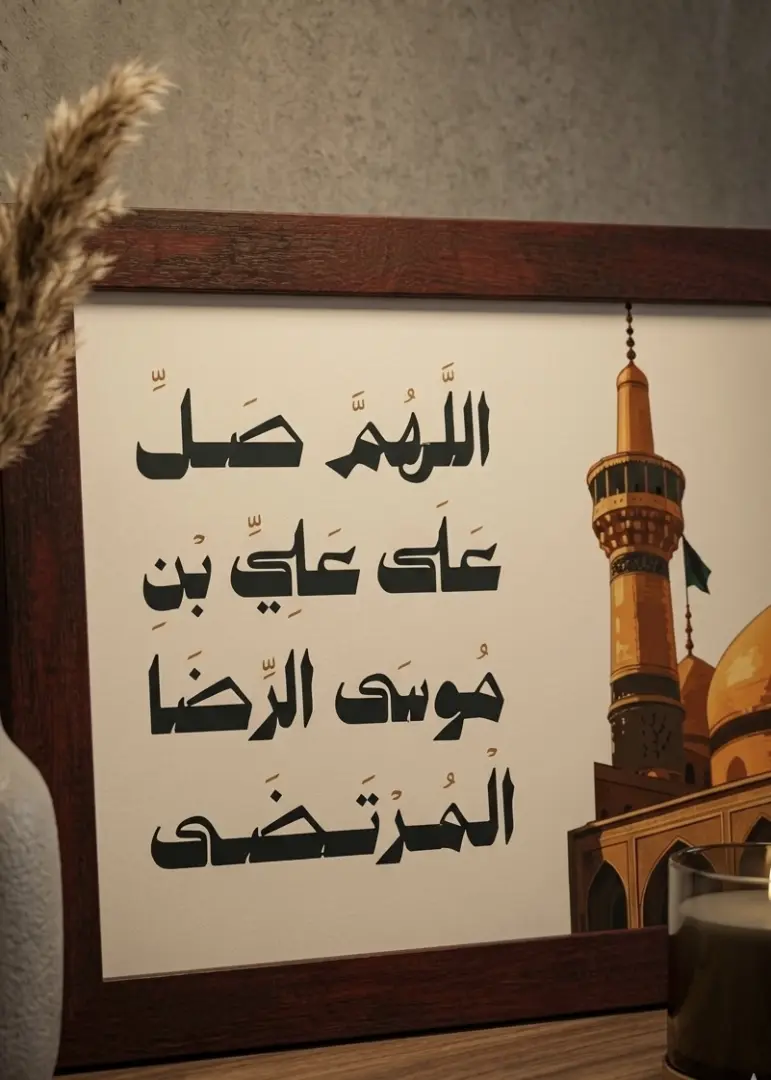 اللَّهُمَّ صَلِّ
عَلَى عَلِيِّ بْنِ
مُوسَى الرِّضَا
الْمُرْتَضَى